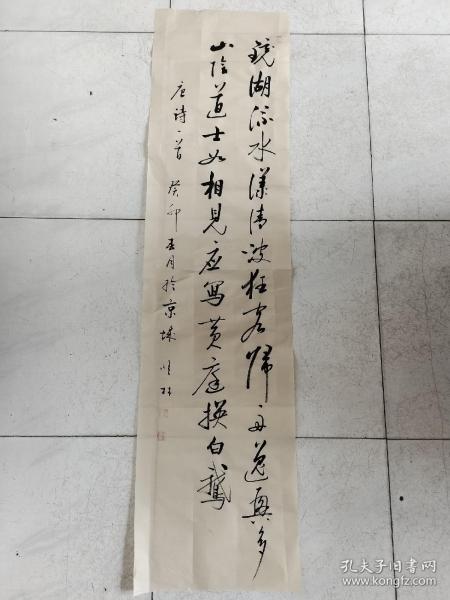 镜湖流水漾清波狂客归舟逸兴多
山阴道士如相見应寫黄庭换白鹅
唐诗一首 癸卯五月於京城
孔夫子旧书网
www.kongfz.com